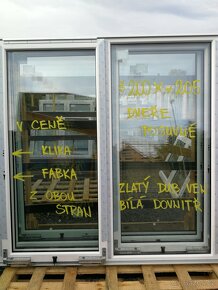 V CENĚ
KLIKA
FABKA
Z OBOU
STRAN
DVEŘE
POSUVNÉ
ZLATÝ DUB VEN
BÍLÁ DOVNITŘ